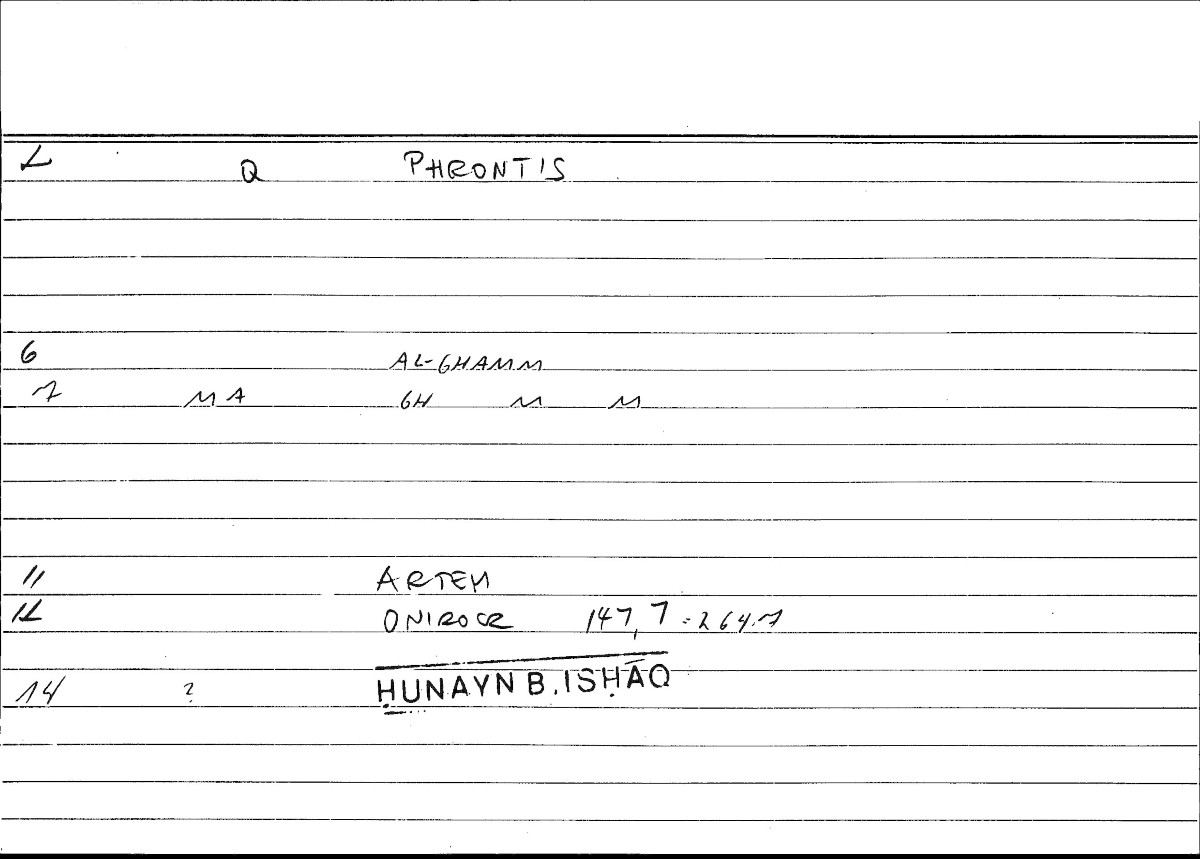 Q PHRONTIS
6 AL-GHAMM
7 MA GH M M
11 ARTEM
12 ONIROCR 147,7 = 264.7
14 ? ḤUNAYN B. ISḤĀQ